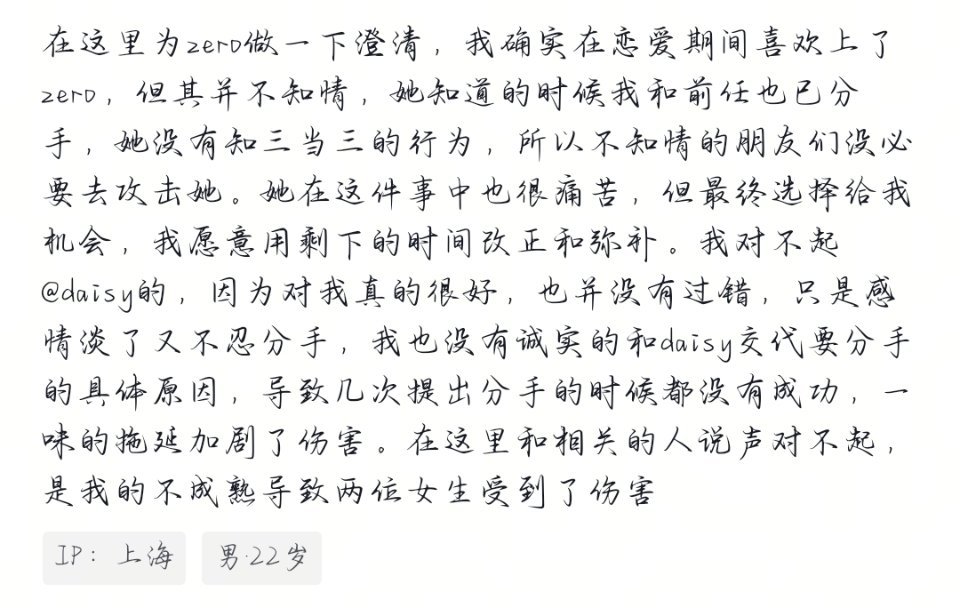 在这里为zero做一下澄清，我确实在恋爱期间喜欢上了
zero，但其并不知情，她知道的时候我和前任也已分
手，她没有知三当三的行为，所以不知情的朋友们没必
要去攻击她。她在这件事中也很痛苦，但最终选择给我
机会，我愿意用剩下的时间改正和弥补。我对不起
@daisy的，因为对我真的很好，也并没有过错，只是感
情淡了又不忍分手，我也没有诚实的和daisy交代要分手
的具体原因，导致几次提出分手的时候都没有成功，一
味的拖延加剧了伤害。在这里和相关的人说声对不起，
是我的不成熟导致两位女生受到了伤害
IP：上海 男·22岁